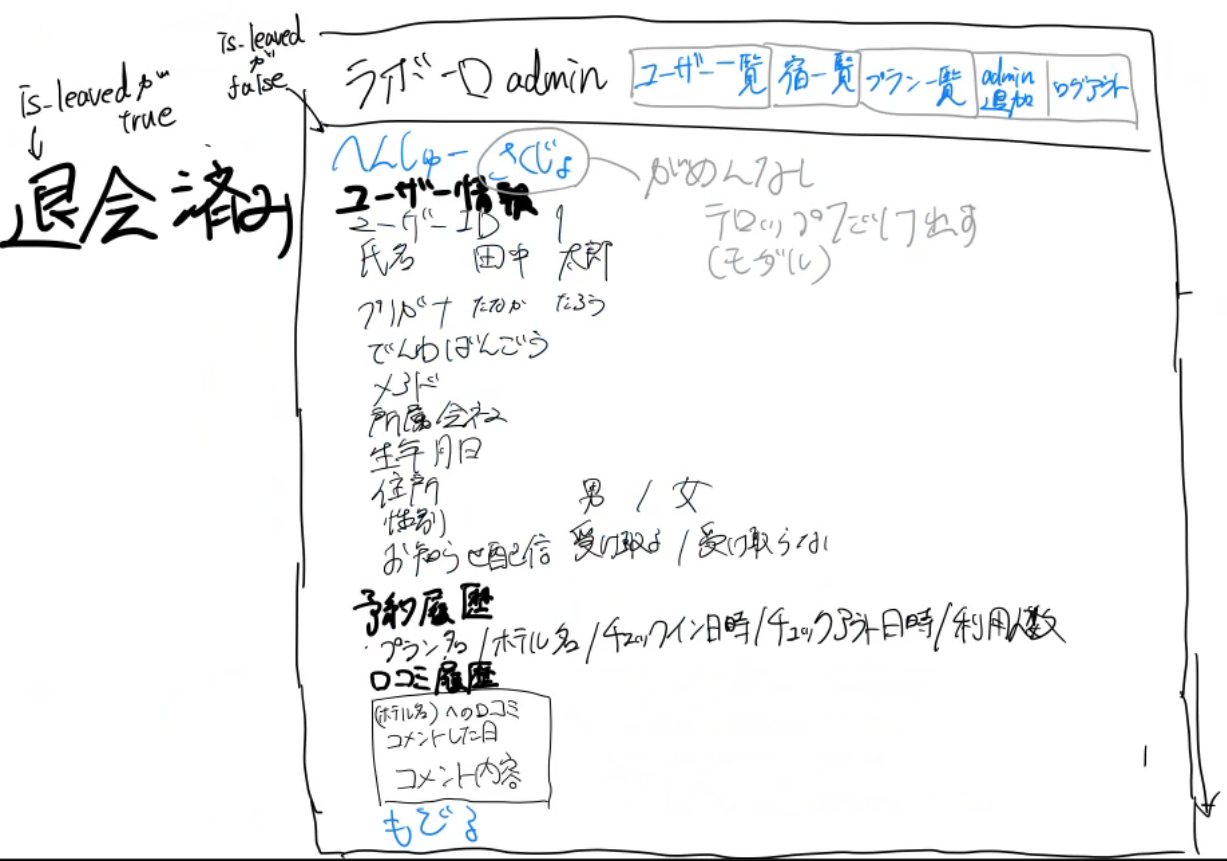 is-leavedが
false
is-leavedが
true
退会済み
admin
ユーザー一覧
宿一覧
プラン一覧
admin
追加
ログアウト
へんしゅー さくじょ
がめんなし
テロップだけ出す
(モーダル)
ユーザー情報
ユーザーID 1
氏名 田中 太郎
フリガナ たなか たろう
でんわばんごう
メアド
所属会社
生年月日
住所
性別 男 / 女
お知らせ配信 受け取る / 受け取らない
予約履歴
・プラン名/ホテル名/チェックイン日時/チェックアウト日時/利用人数
口コミ履歴
(ホテル名)への口コミ
コメントした日
コメント内容
もどる